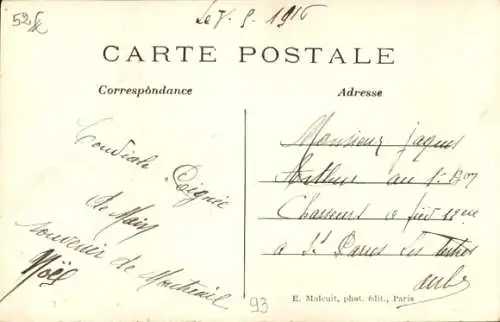 52
Le V. 9. 1916
CARTE POSTALE
Correspondance
Adresse
Cordiale Poignée
de Main
souvenir de Montreuil
Noël
Monsieur Jaques
Arthur au 1er Bon
Chasseurs à Pied
à St
aube
93
E. Malcuit, phot. édit., Paris